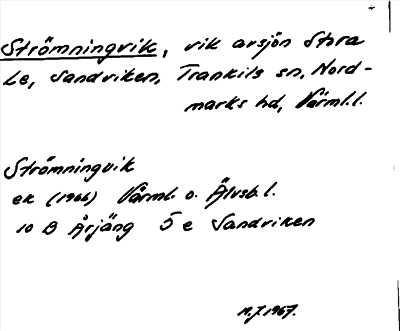 Strömningvik, vik av sjön Stora
Le, Sandviken, Trankils sn, Nord-
marks hd, Värml. l.
Strömningvik
ek (1966) Värml. o. Älvsb. l.
10 B Årjäng 5 e Sandviken
M.J. 1967.